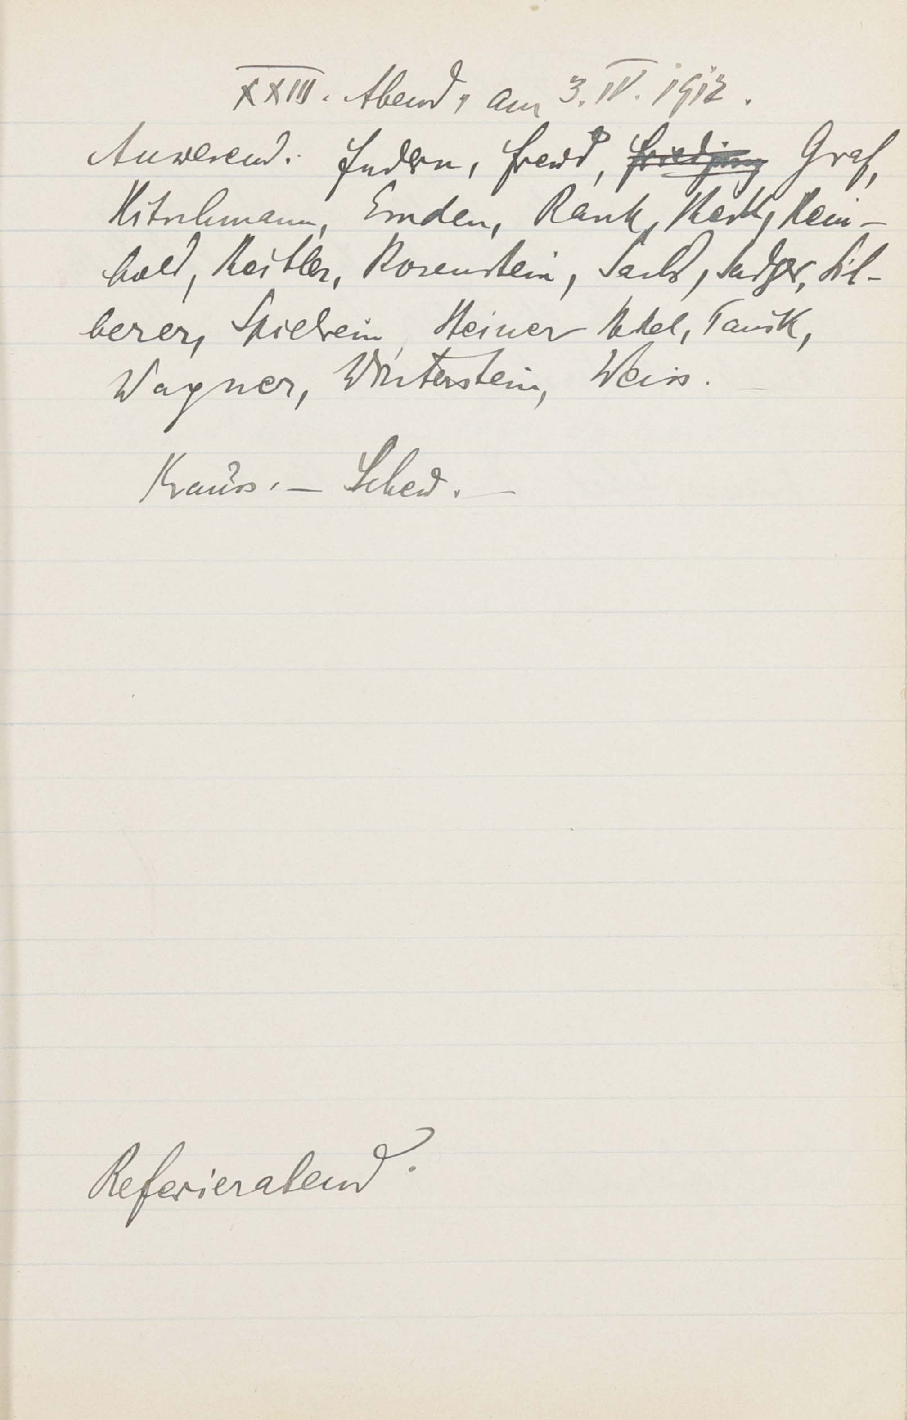 XXIII. Abend, am 3. IV. 1912.
Anwesend: Federn, Freud, Friedjung Graf,
Hitschmann, Emden, Rank, Rein-
hold, Reitler, Rosenstein, Sachs, Sadger, Sil-
berer, Spielrein, Steiner Stekel, Tausk,
Wagner, Winterstein, Weiss.
Krauss. —
Referierabend.